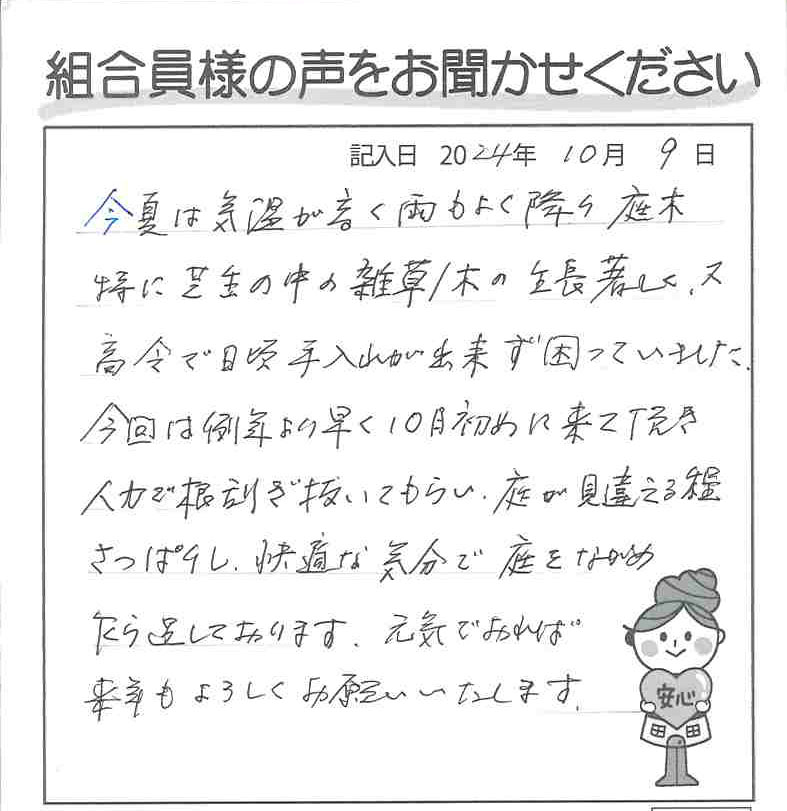 組合員様の声をお聞かせください
記入日 2024年 10月 9日
今夏は気温が高く雨もよく降り庭木
特に芝生の中の雑草/木の生長著しく、又
高令で日頃手入れが出来ず困っていました。
今回は例年より早く10月初めに来て頂き
人力で根刮ぎ抜いてもらい、庭が見違える程
さっぱりし、快適な気分で庭をながめ
くらしております。元気でおれば
来年もよろしくお願いいたします。
安心